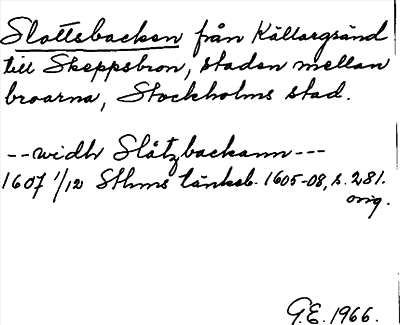 Slottsbacken från Källargränd
till Skeppsbron, staden mellan
broarna, Stockholms stad.
--widh Slåtzbackann---
1607 1/12 Sthms tänkeb. 1605-08, s. 281.
orig.
G.E. 1966.